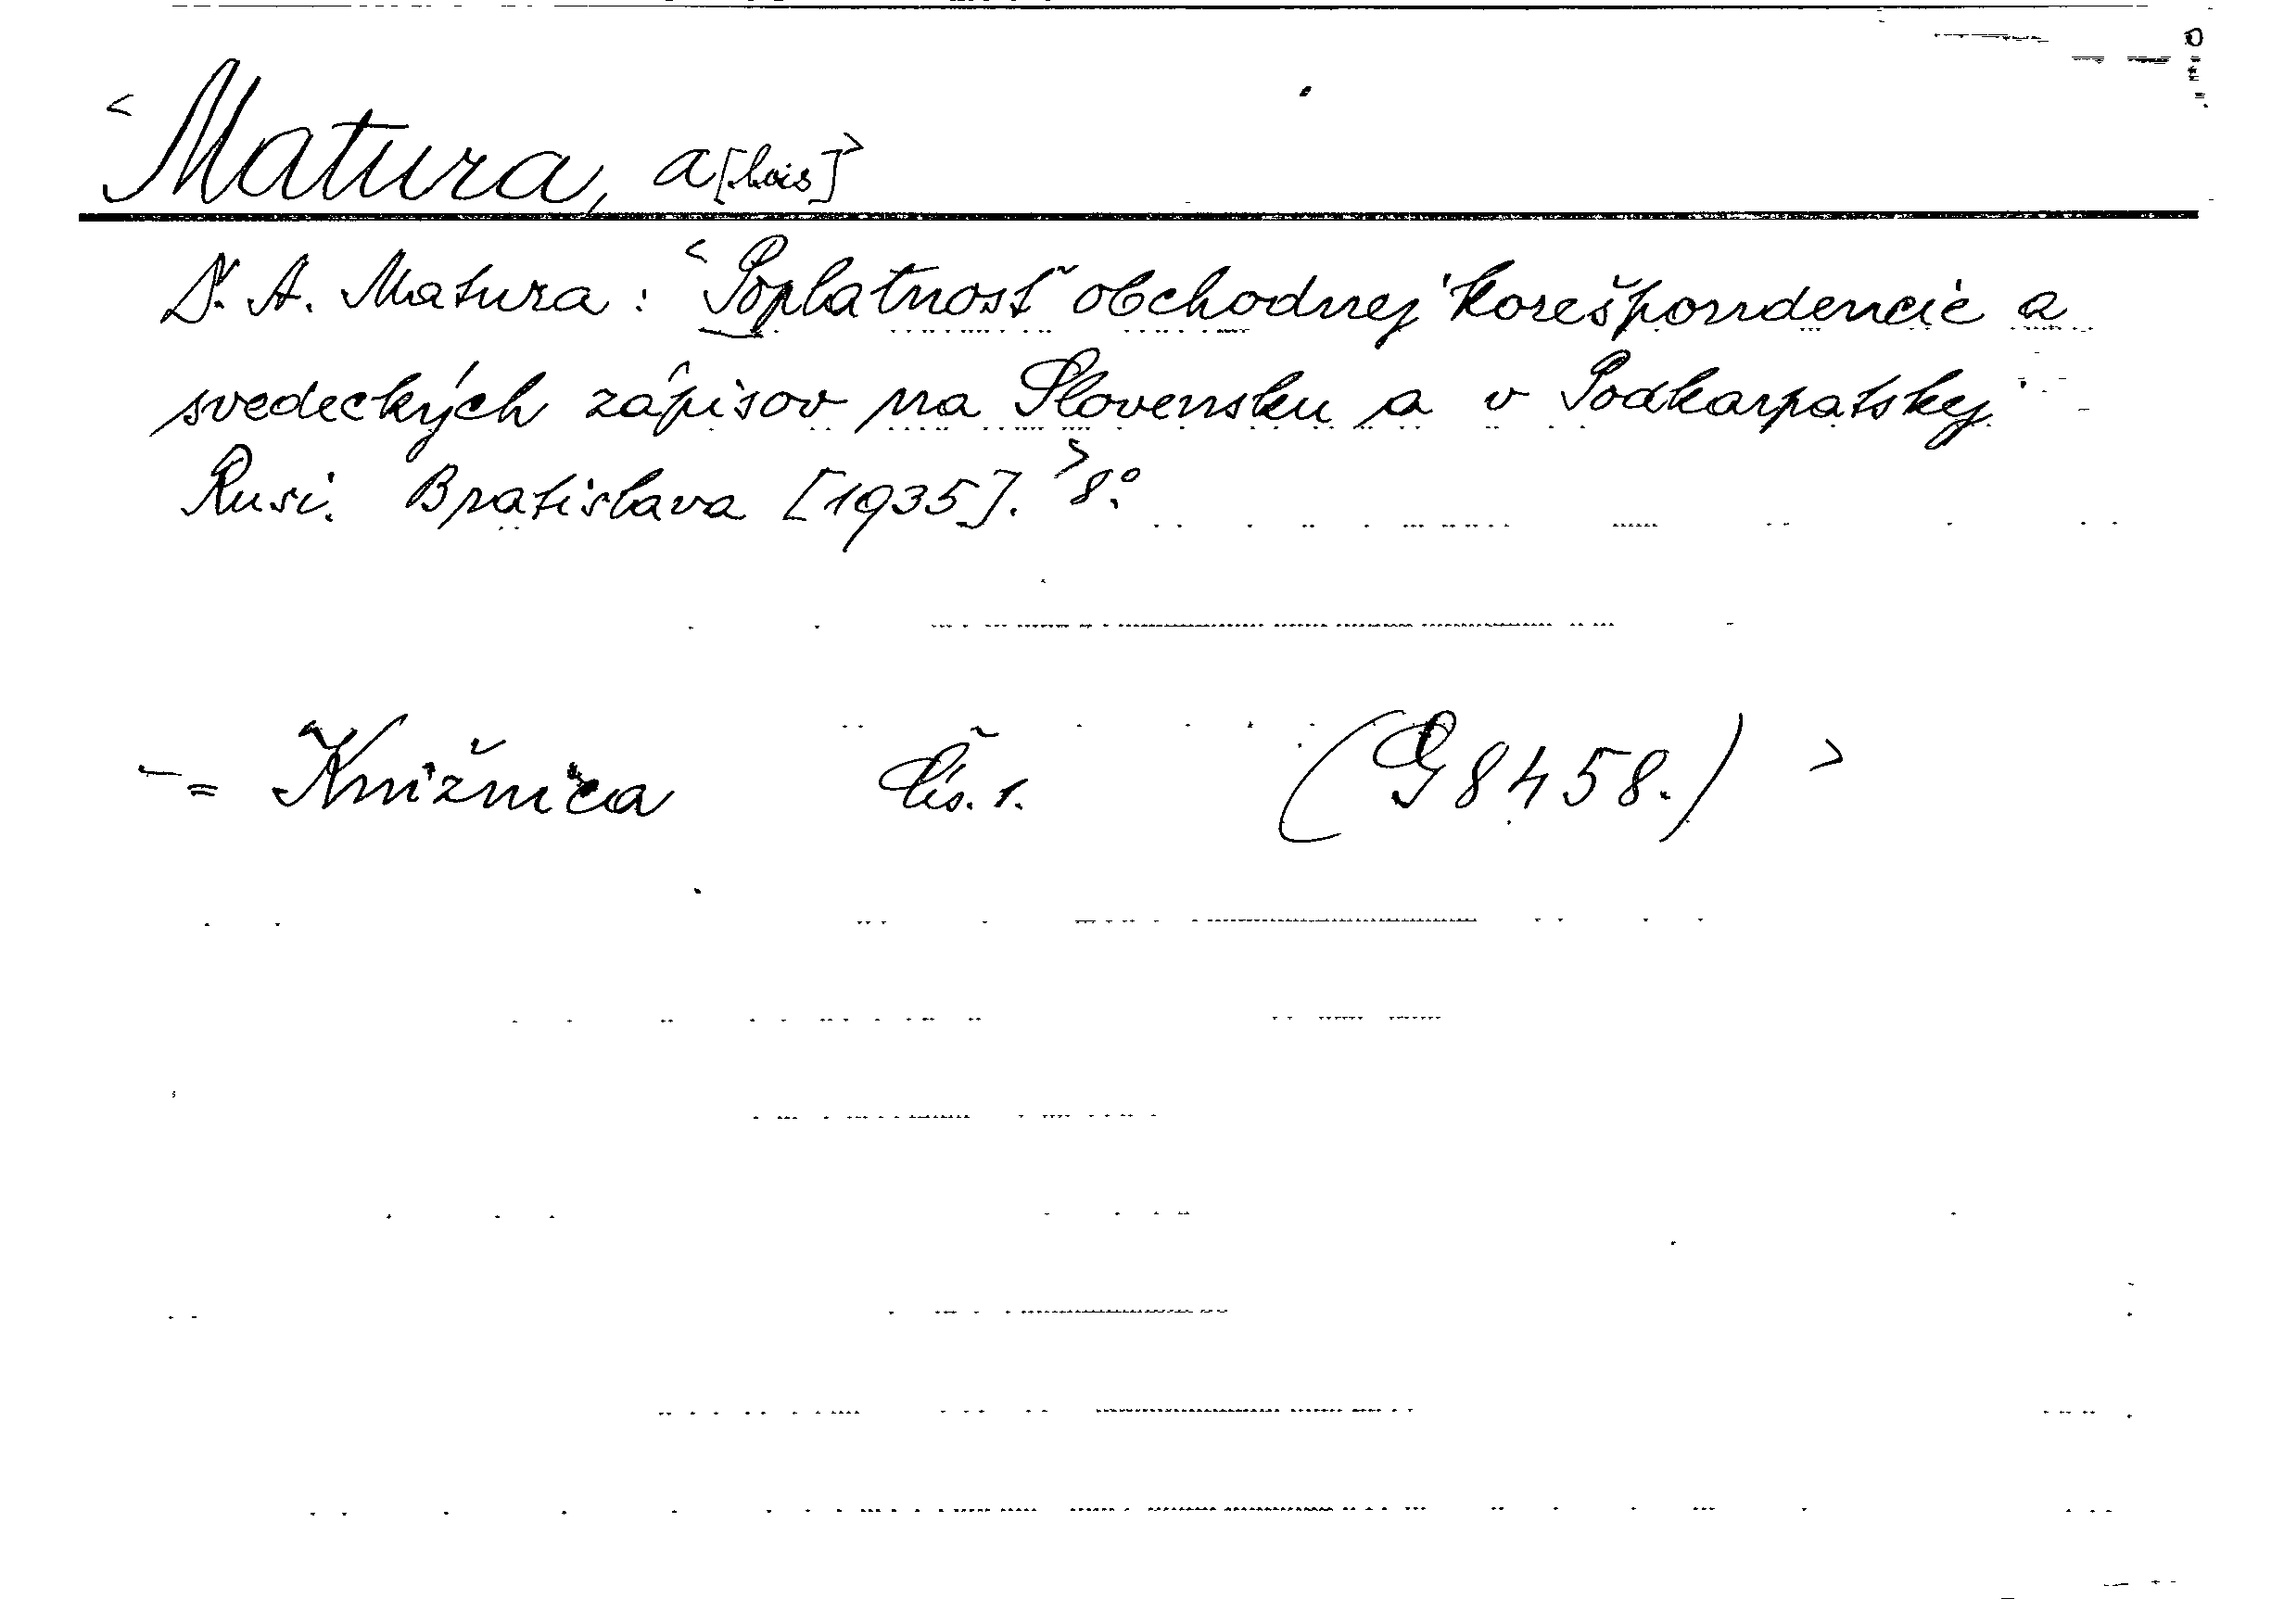 <Matura, A[lois]>
D. A. Matura: <Poplatnosť obchodnej korešpondencie a
svedeckých zápisov na Slovensku a v Podkarpatskej
Rusi. Bratislava [1935].> 8°.
= Knižnica Čís. 1. (G 8458.) >